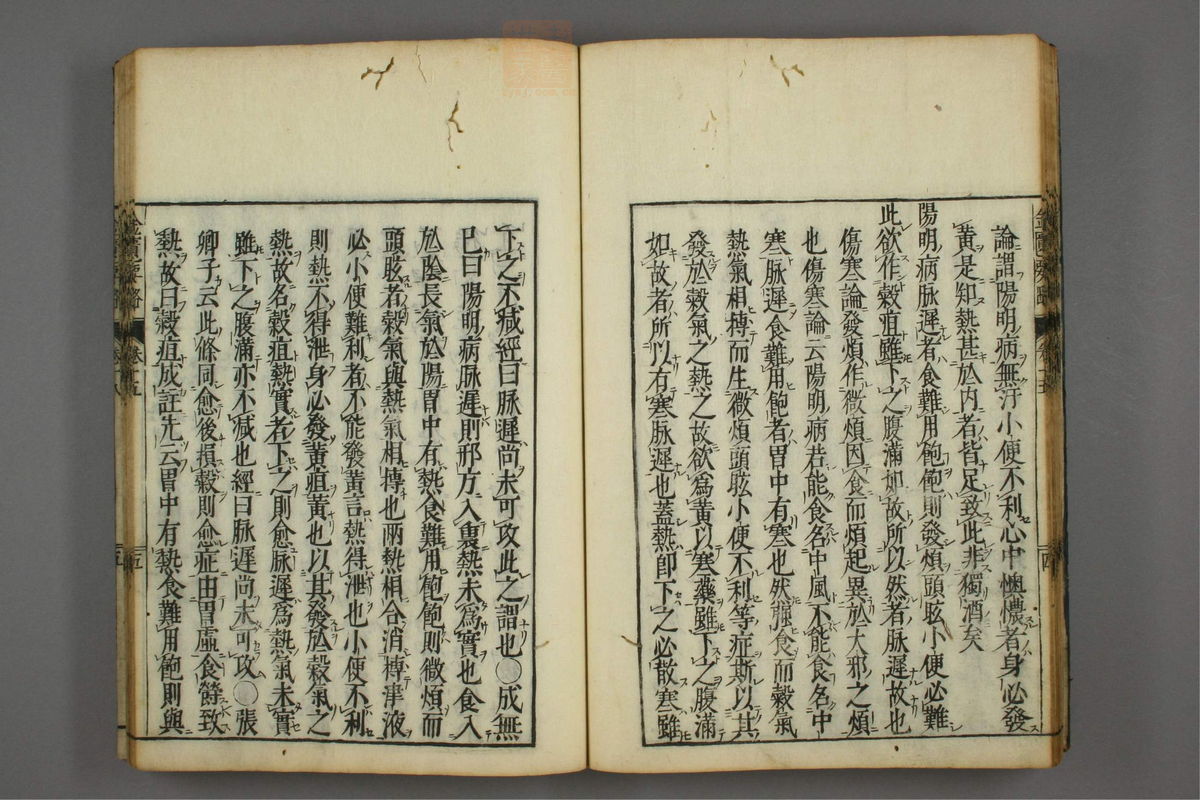 論謂陽明病無汗小便不利心中懊憹者身必發
黃是知熱甚於內者皆足致此非獨酒矣
陽明病脉遲者食難用飽飽則發煩頭眩小便必難
此欲作穀疸雖下之腹滿如故所以然者脉遲故也
傷寒論發煩作微煩因食而煩起異於大邪之煩
也傷寒論云陽明病若能食名中風不能食名中
寒脉遲食難用飽者胃中有寒也然强食而穀氣
熱氣相搏而生微煩頭眩小便不利等症斯以其
發於穀氣之熱之故欲爲黃以寒藥雖下之腹滿
如故者所以有寒脉遲也蓋熱卽下之必散寒雖
下之不減經曰脉遲尚未可攻此之謂也○成無
已曰陽明病脉遲則邪方入裏熱未爲實也食入
於陰長氣於陽胃中有熱食難用飽飽則微煩而
頭眩者穀氣與熱氣相搏也兩熱相合消搏津液
必小便難利者不能發黃言熱得泄也小便不利
則熱不得泄身必發黃疸黃也以其發於穀氣之
熱故名穀疸熱實者下之則愈脉遲爲熱氣未實
雖下之腹滿亦不減也經曰脉遲尚未可攻○張
卿子云此條同愈後損穀則愈症由胃虛食餘致
熱故曰穀疸成註先云胃中有熱食難用飽則與
金匱要略
卷十五
五